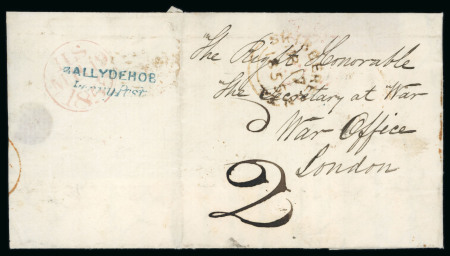 BALLYDEHOB
Penny Post
The Right Honorable
The Secretary at War
War Office
London
2